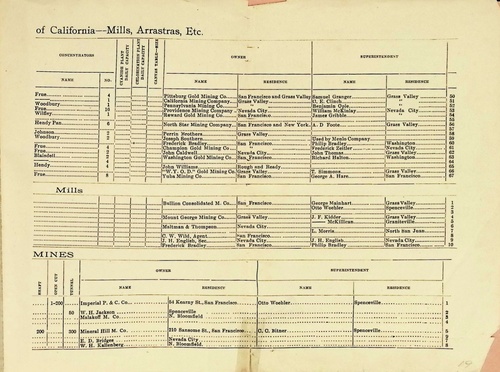 of California—Mills, Arrastras, Etc.
CONCENTRATORS CYANIDE PLANT DAILY CAPACITY CHLORINATION PLANT DAILY CAPACITY OWNER SUPERINTENDENT
NAME NO. NAME RESIDENCE NAME RESIDENCE
Frue 4 Pittsburg Gold Mining Co. San Francisco and Grass Valley Samuel Granger Grass Valley 50
Frue California Mining Company Grass Valley U. E. Clinch " 51
Woodbury Pennsylvania Mining Co. " Benjamin Opie " 52
Frue 10 Providence Mining Company Nevada City William McKinley Nevada City 53
Wilfley 1 Reward Gold Mining Co. San Francisco James Gribble
Hendy Pan 6 North Star Mining Company San Francisco and New York A. D. Foote Grass Valley
Johnson 2 Perrin Brothers Grass Valley
Woodbury 2 Joseph Brothers " Used by Menlo Company
Frederick Bradley San Francisco Philip Bradley Washington 60
Frue 4 Champion Gold Mining Co. " Frederick Zeitler Nevada City
Frue John Caldwell Nevada City John Thomas Grass Valley
Blaisdell 2 Washington Gold Mining Co. San Francisco Richard Hatton Washington
Hendy 4 John Williams Rough and Ready
"W. Y. O. D." Gold Mining Co. Grass Valley T. Simmons Grass Valley 66
Frue 8 Yuba Mining Co. San Francisco George A. Hare San Francisco 67
Mills
Bullion Consolidated M. Co. San Francisco George Mainhart Grass Valley 1
Otto Woehler Spenceville 2
3
Mount George Mining Co. Grass Valley J. F. Kidder Grass Valley 4
McKillican Graniteville 5
Maltman & Thompson Nevada City 6
L. Morris North San Juan 7
C. W. Wild, Agent San Francisco 8
J. H. English, Sec. Nevada City J. H. English Nevada City 9
Frederick Bradley San Francisco Philip Bradley Nevada City 10
MINES
SHAFT OPEN CUT TUNNEL OWNER SUPERINTENDENT
NAME RESIDENCE NAME RESIDENCE
1-200 Imperial P. & C. Co. 64 Kearny St., San Francisco Otto Woehler Spenceville 1
50 W. H. Jackson Spenceville 2
Malakoff M. Co. N. Bloomfield 3
4
200 300 Mineral Hill M. Co. 210 Sansome St., San Francisco C. C. Bitner Spenceville 5
E. D. Bridges Nevada City
W. H. Kallenberg N. Bloomfield 8